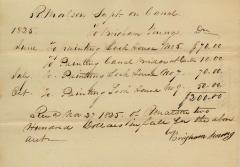 Watson Supt on Canal
1835 To Brigham Young Dr
June To Painting Lock House No 5. $70.00
To Painting Canal 10.00
July To Painting Lock House No 7. 70.00
Oct To Painting Lock House No 9. 50.00
$200.00
Recd Nov 27 1835 of Watson two
Hundred Dollars in full for the above
Brigham Young